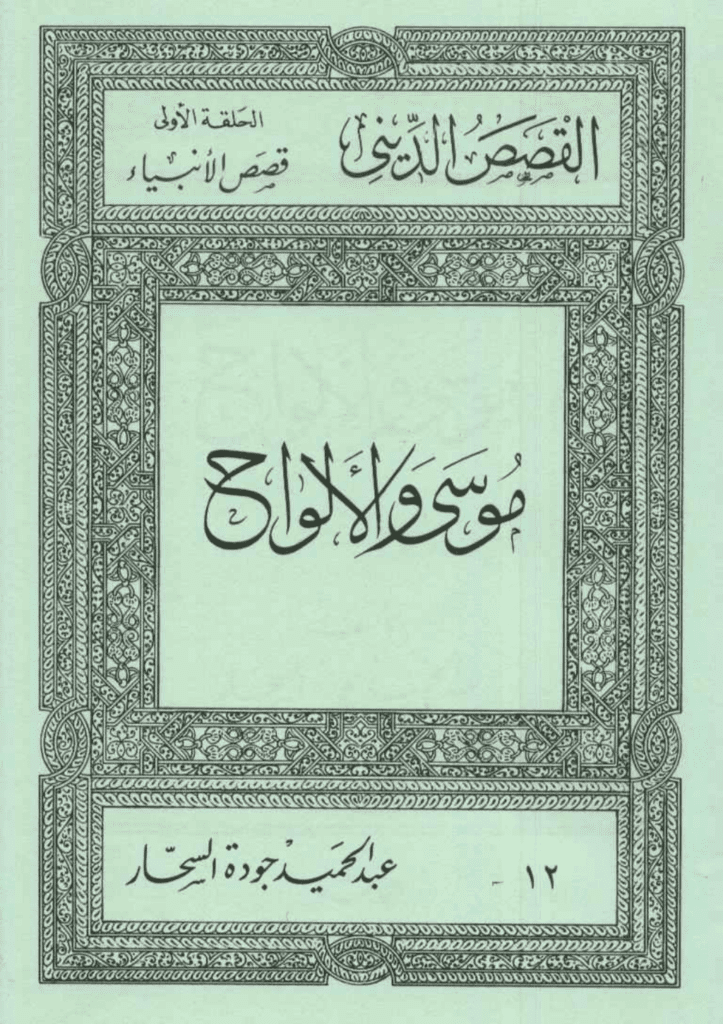 القَصَصُ الدِّينِى
الحَلقَة الأولى
قصَص الأنبياء
مُوسَى وَالأَلواح
١٢ -
عبد الحميد جودة السحّار